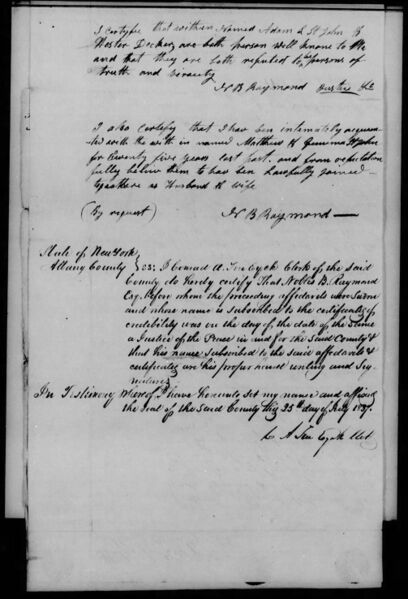 I certify that within Named Adam L St John &
Hester Decker, are both person well knone to Me
and that they are both reputed to be persons of
truth and viracity
N B Raymond Justice &c
I also certify that I have ben intimately acquain
ted with the with in named Matthew & Jemima St John
for twenty five years last past. and from reputation
fully believe them to have been Lawfully joined
together as Husband & wife
(By request) N B Raymond
State of New York
Albany County } SS; I Conrad A. Ten Eyck Clerk of the said
County do hereby certify That N B Raymond
Esq. Before whom the preceeding affidavits were Sworn
and whose name is subscribed to the certificates of
credibility was on the day of the date of the same
a Justice of the Peace in and for the said County &
that his name subscribed to the said affidavits &
certificates are his proper hand writing and Sig
natures
In Testimony whereof I have hereunto set my name and affixed
the seal of the said County this 25th day of July 1837.
C A Ten Eyck Clk